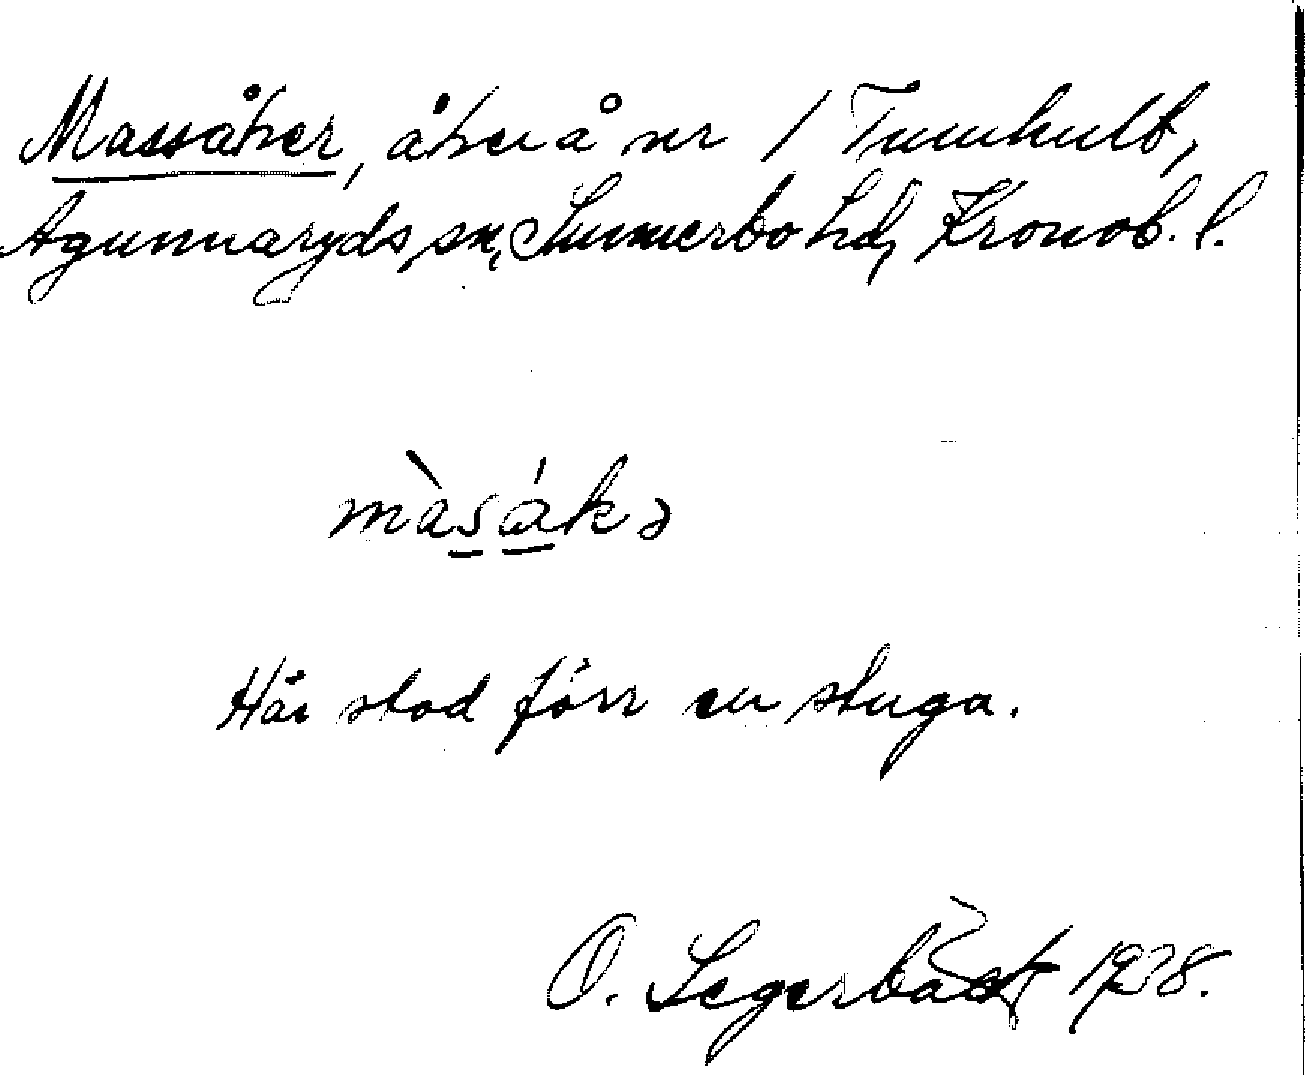 Massåker, åker å nr 1 Tumhult,
Agunnaryds sn, Sunnerbo hd, Kronob. l.
màsåkə
Här stod förr en stuga.
O. Segerbäck 1928.